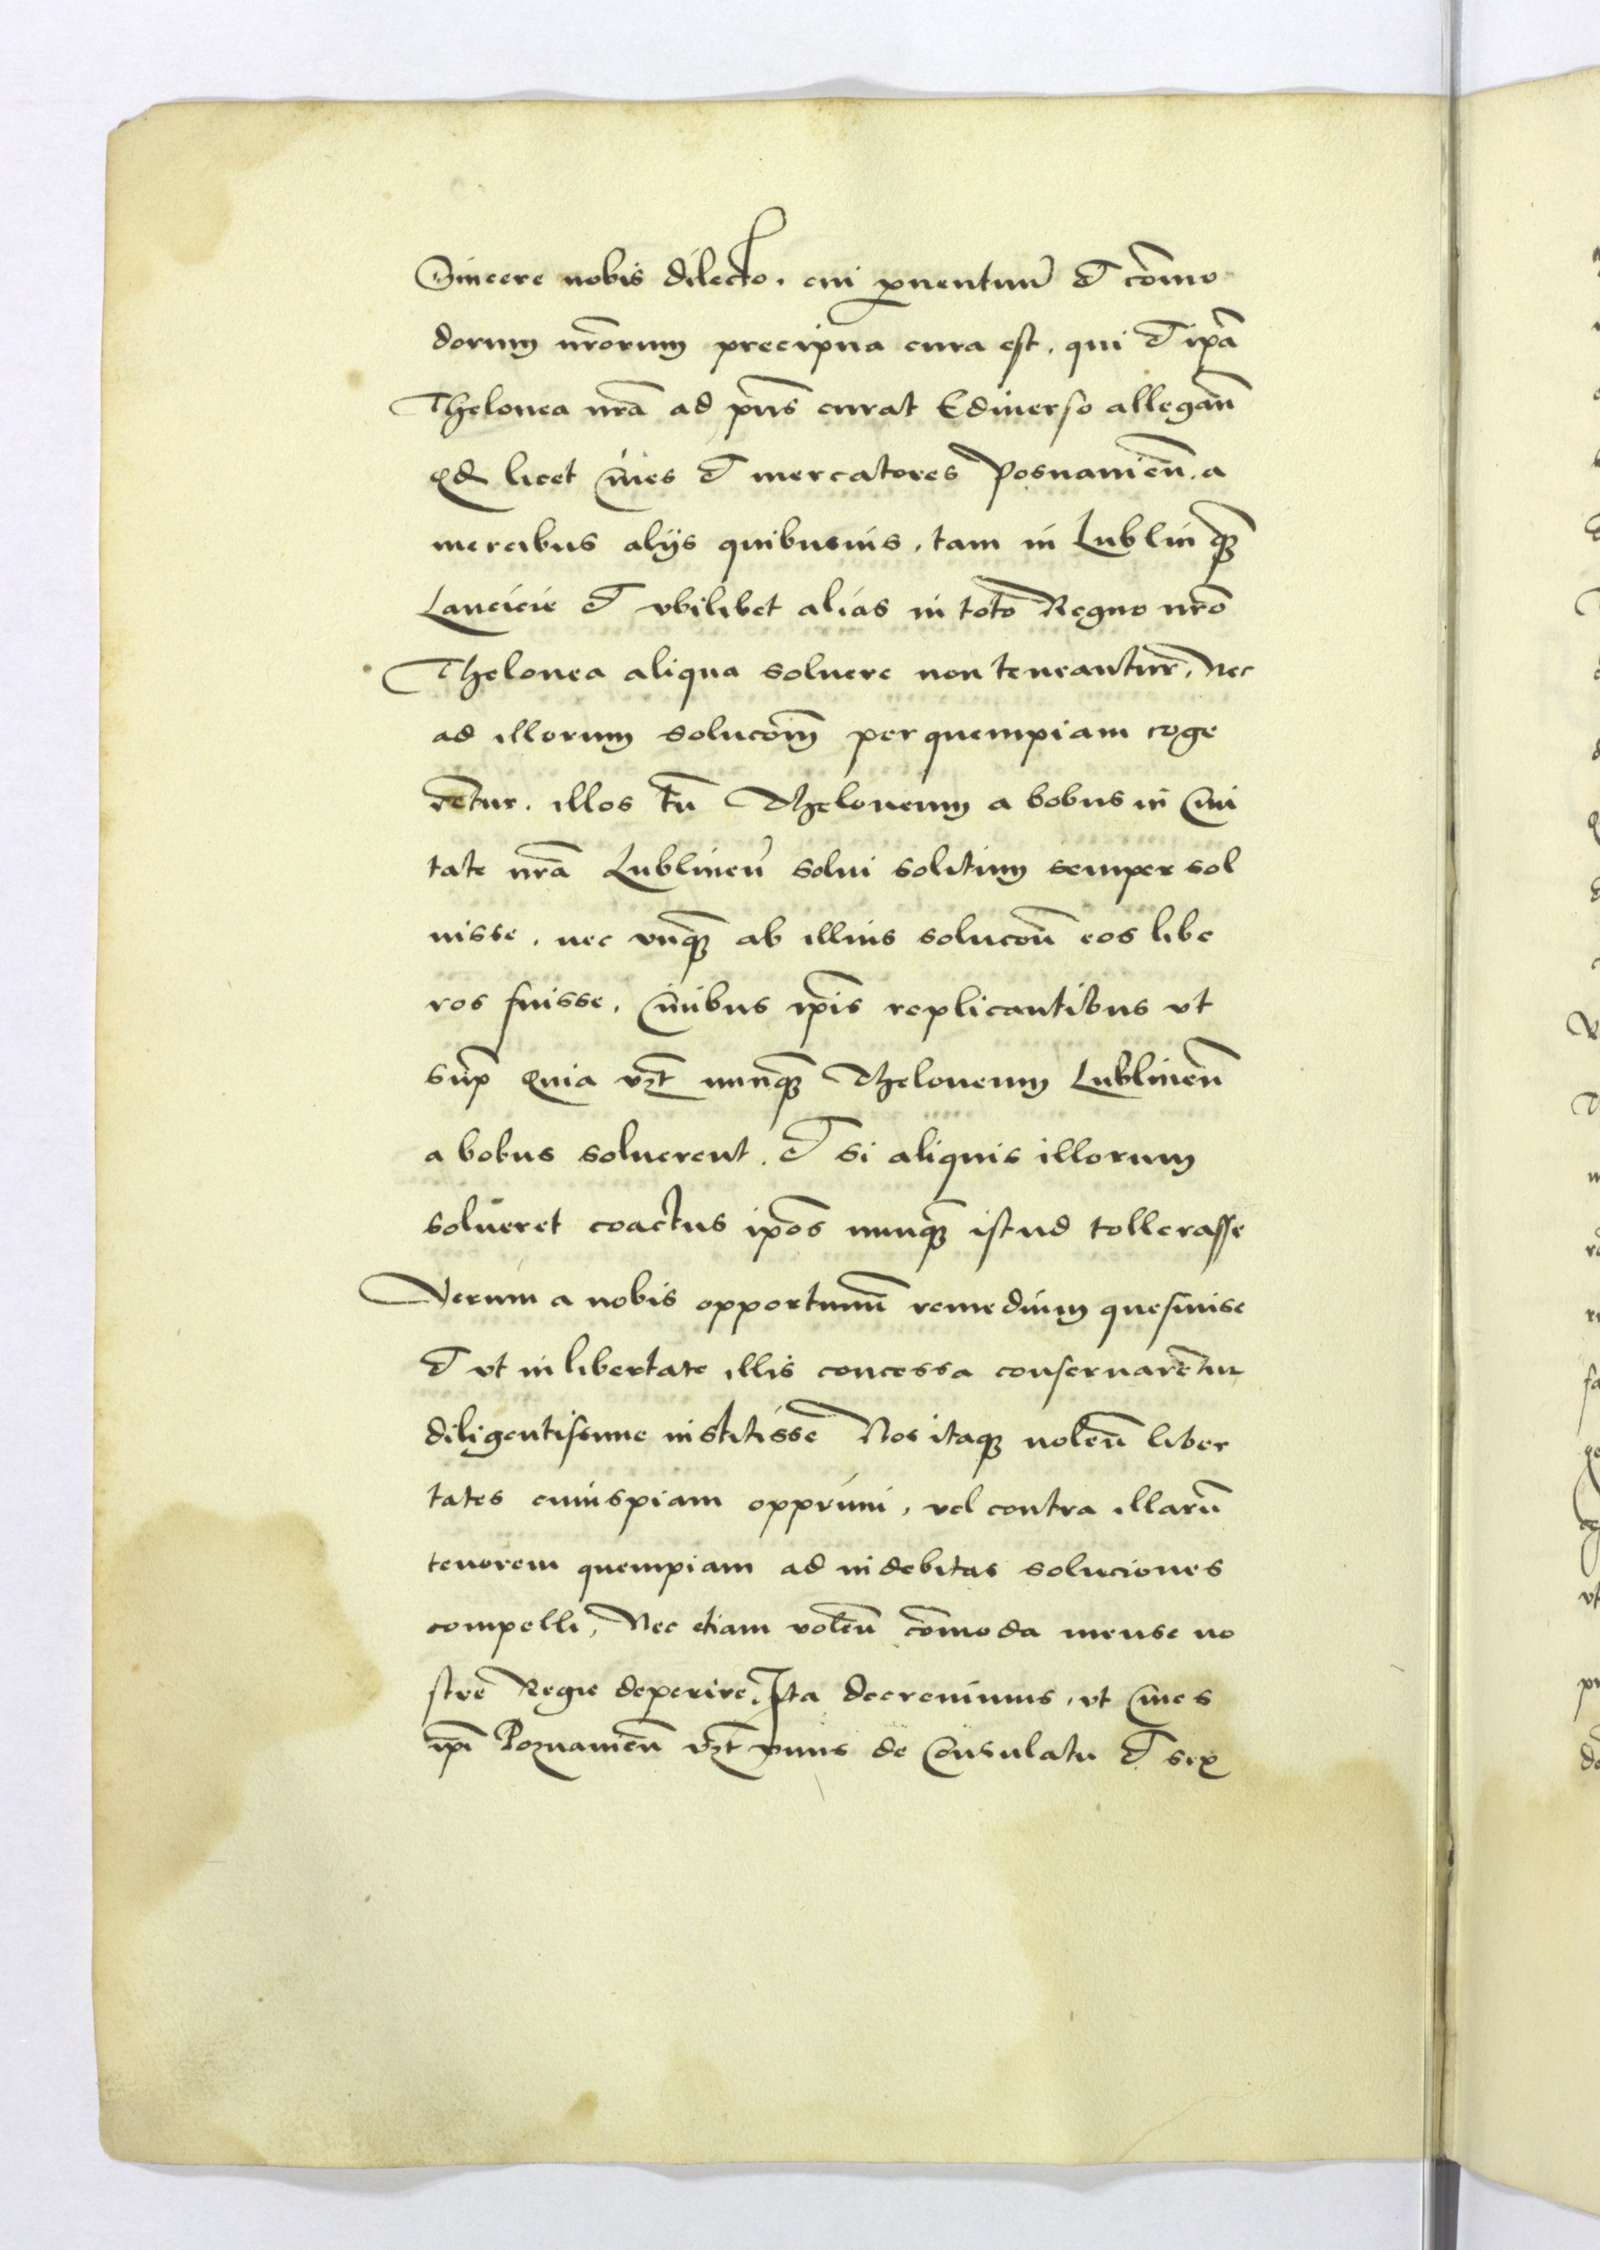 Sincere nobis dilecto. cui ꝓuentuũ et cõmo
dorum nr̃orum precipua cura est. qui et ip̃a
Thelonea nr̃a ad pñs curat Ediuerso allegañ
ꝙ licet Ciues et mercatores Posnanieñ. a
mercibus alijs quibusuis. tam in Lublin qꝫ
Lancicie et vbilibet alias in toto Regno nr̃o
Thelonea aliqua soluere non teneantur. Nec
ad illorum solucõm per quempiam coge
rẽtur. illos tñ Theloneum a bobus in Ciui
tate nr̃a Lublineñ solui solitum semper sol
uisse. nec vnqꝫ ab illius solucõñ eos libe
ros fuisse. Ciuibus ip̃is replicantibus vt
sup̃ Quia vꝫt nunqꝫ Theloneum Lublineñ
a bobus soluerent. et si aliquis illorum
solueret coactus ip̃os nunqꝫ istud tollerasse
Verum a nobis opportunũ remedium quesiuise
et vt in libertate illis concessa conseruarẽtur
diligentissime institisse Nos itaqꝫ noleñ liber
tates cuiuspiam opprimi, vel contra illarũ
tenorem quempiam ad indebitas soluciones
compelli, Nec etiam voleñ cõmoda mense no
stre Regie deperire. Ita decreuimus. vt Ciues
ip̃i Poznanieñ vꝫt vnus de Consulatu et sex